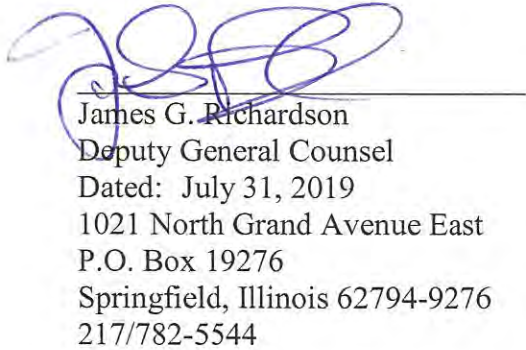 James G. Richardson
Deputy General Counsel
Dated: July 31, 2019
1021 North Grand Avenue East
P.O. Box 19276
Springfield, Illinois 62794-9276
217/782-5544